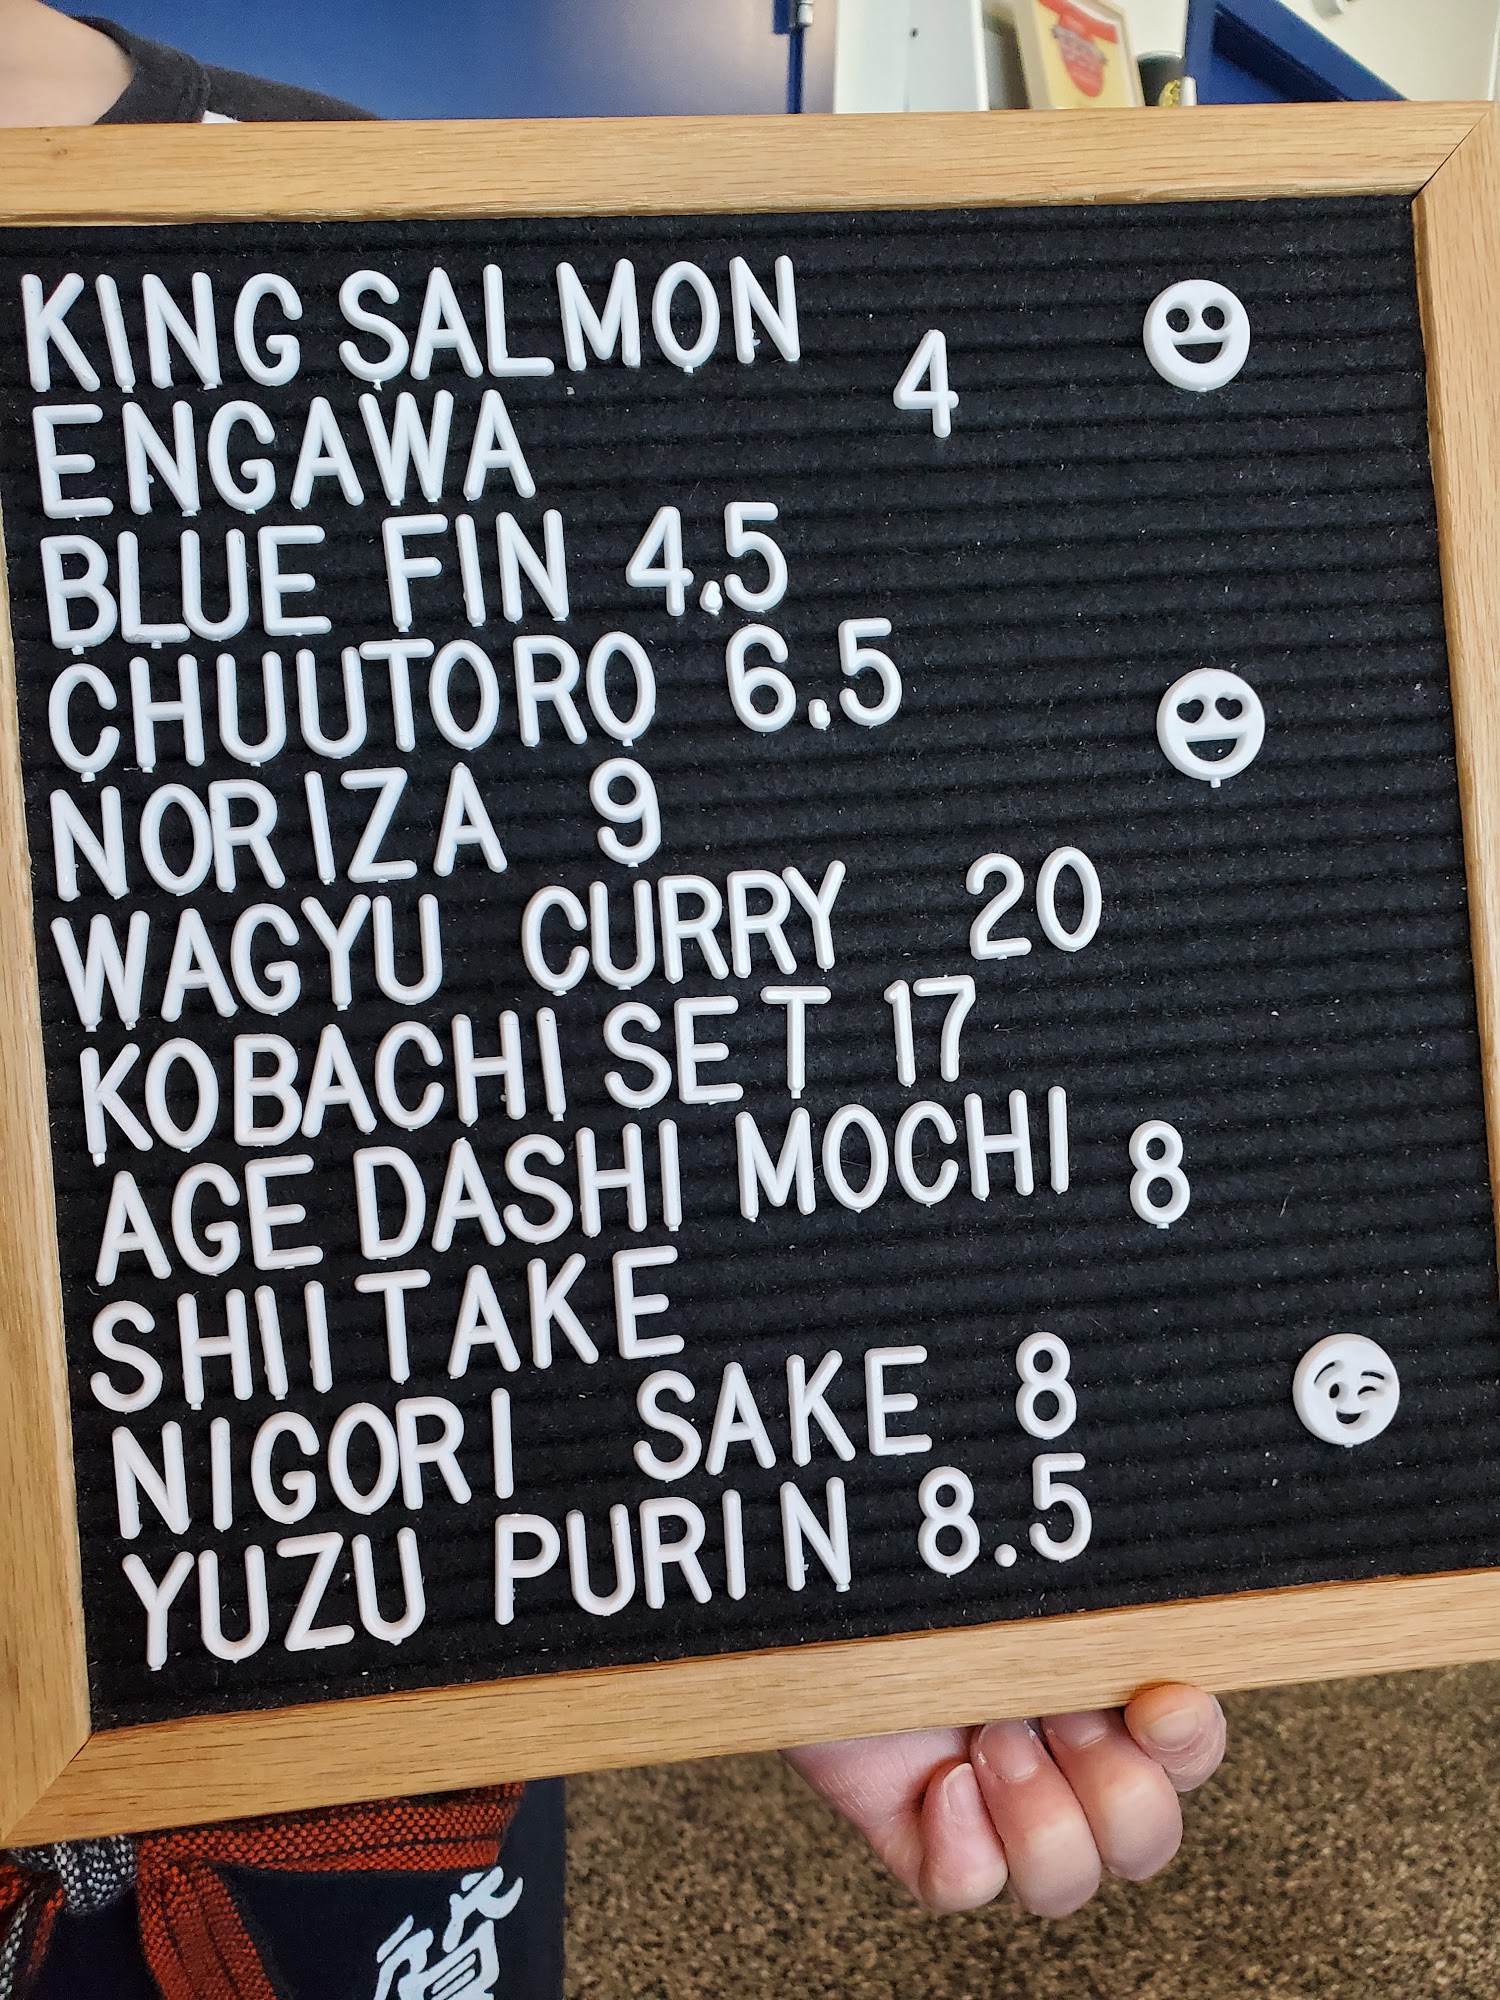 KING SALMON
ENGAWA 4
BLUE FIN 4.5
CHUUTORO 6.5
NORIZA 9
WAGYU CURRY 20
KOBACHI SET 17
AGE DASHI MOCHI 8
SHIITAKE
NIGORI SAKE 8
YUZU PURIN 8.5